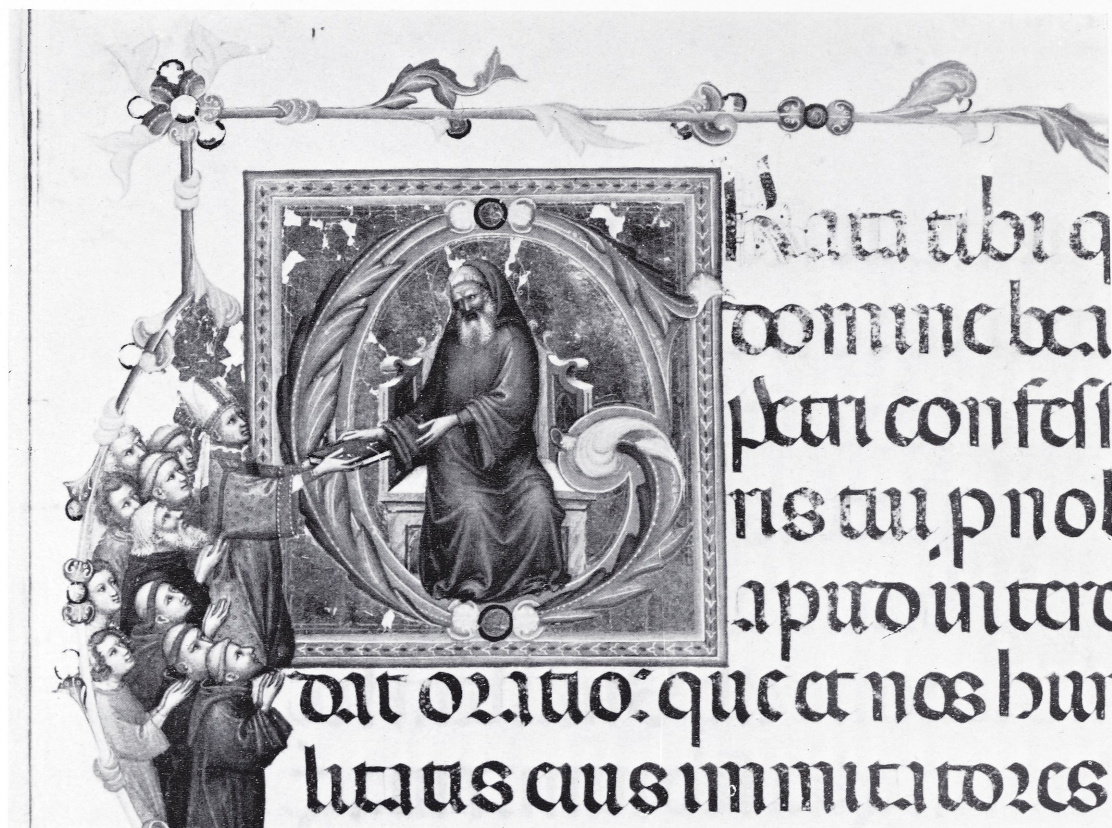 Rata tibi q
domine bea
petri confess
ris tui p nob
apud uitere
dat oratio: que et nos hum
litatis eius immitatores